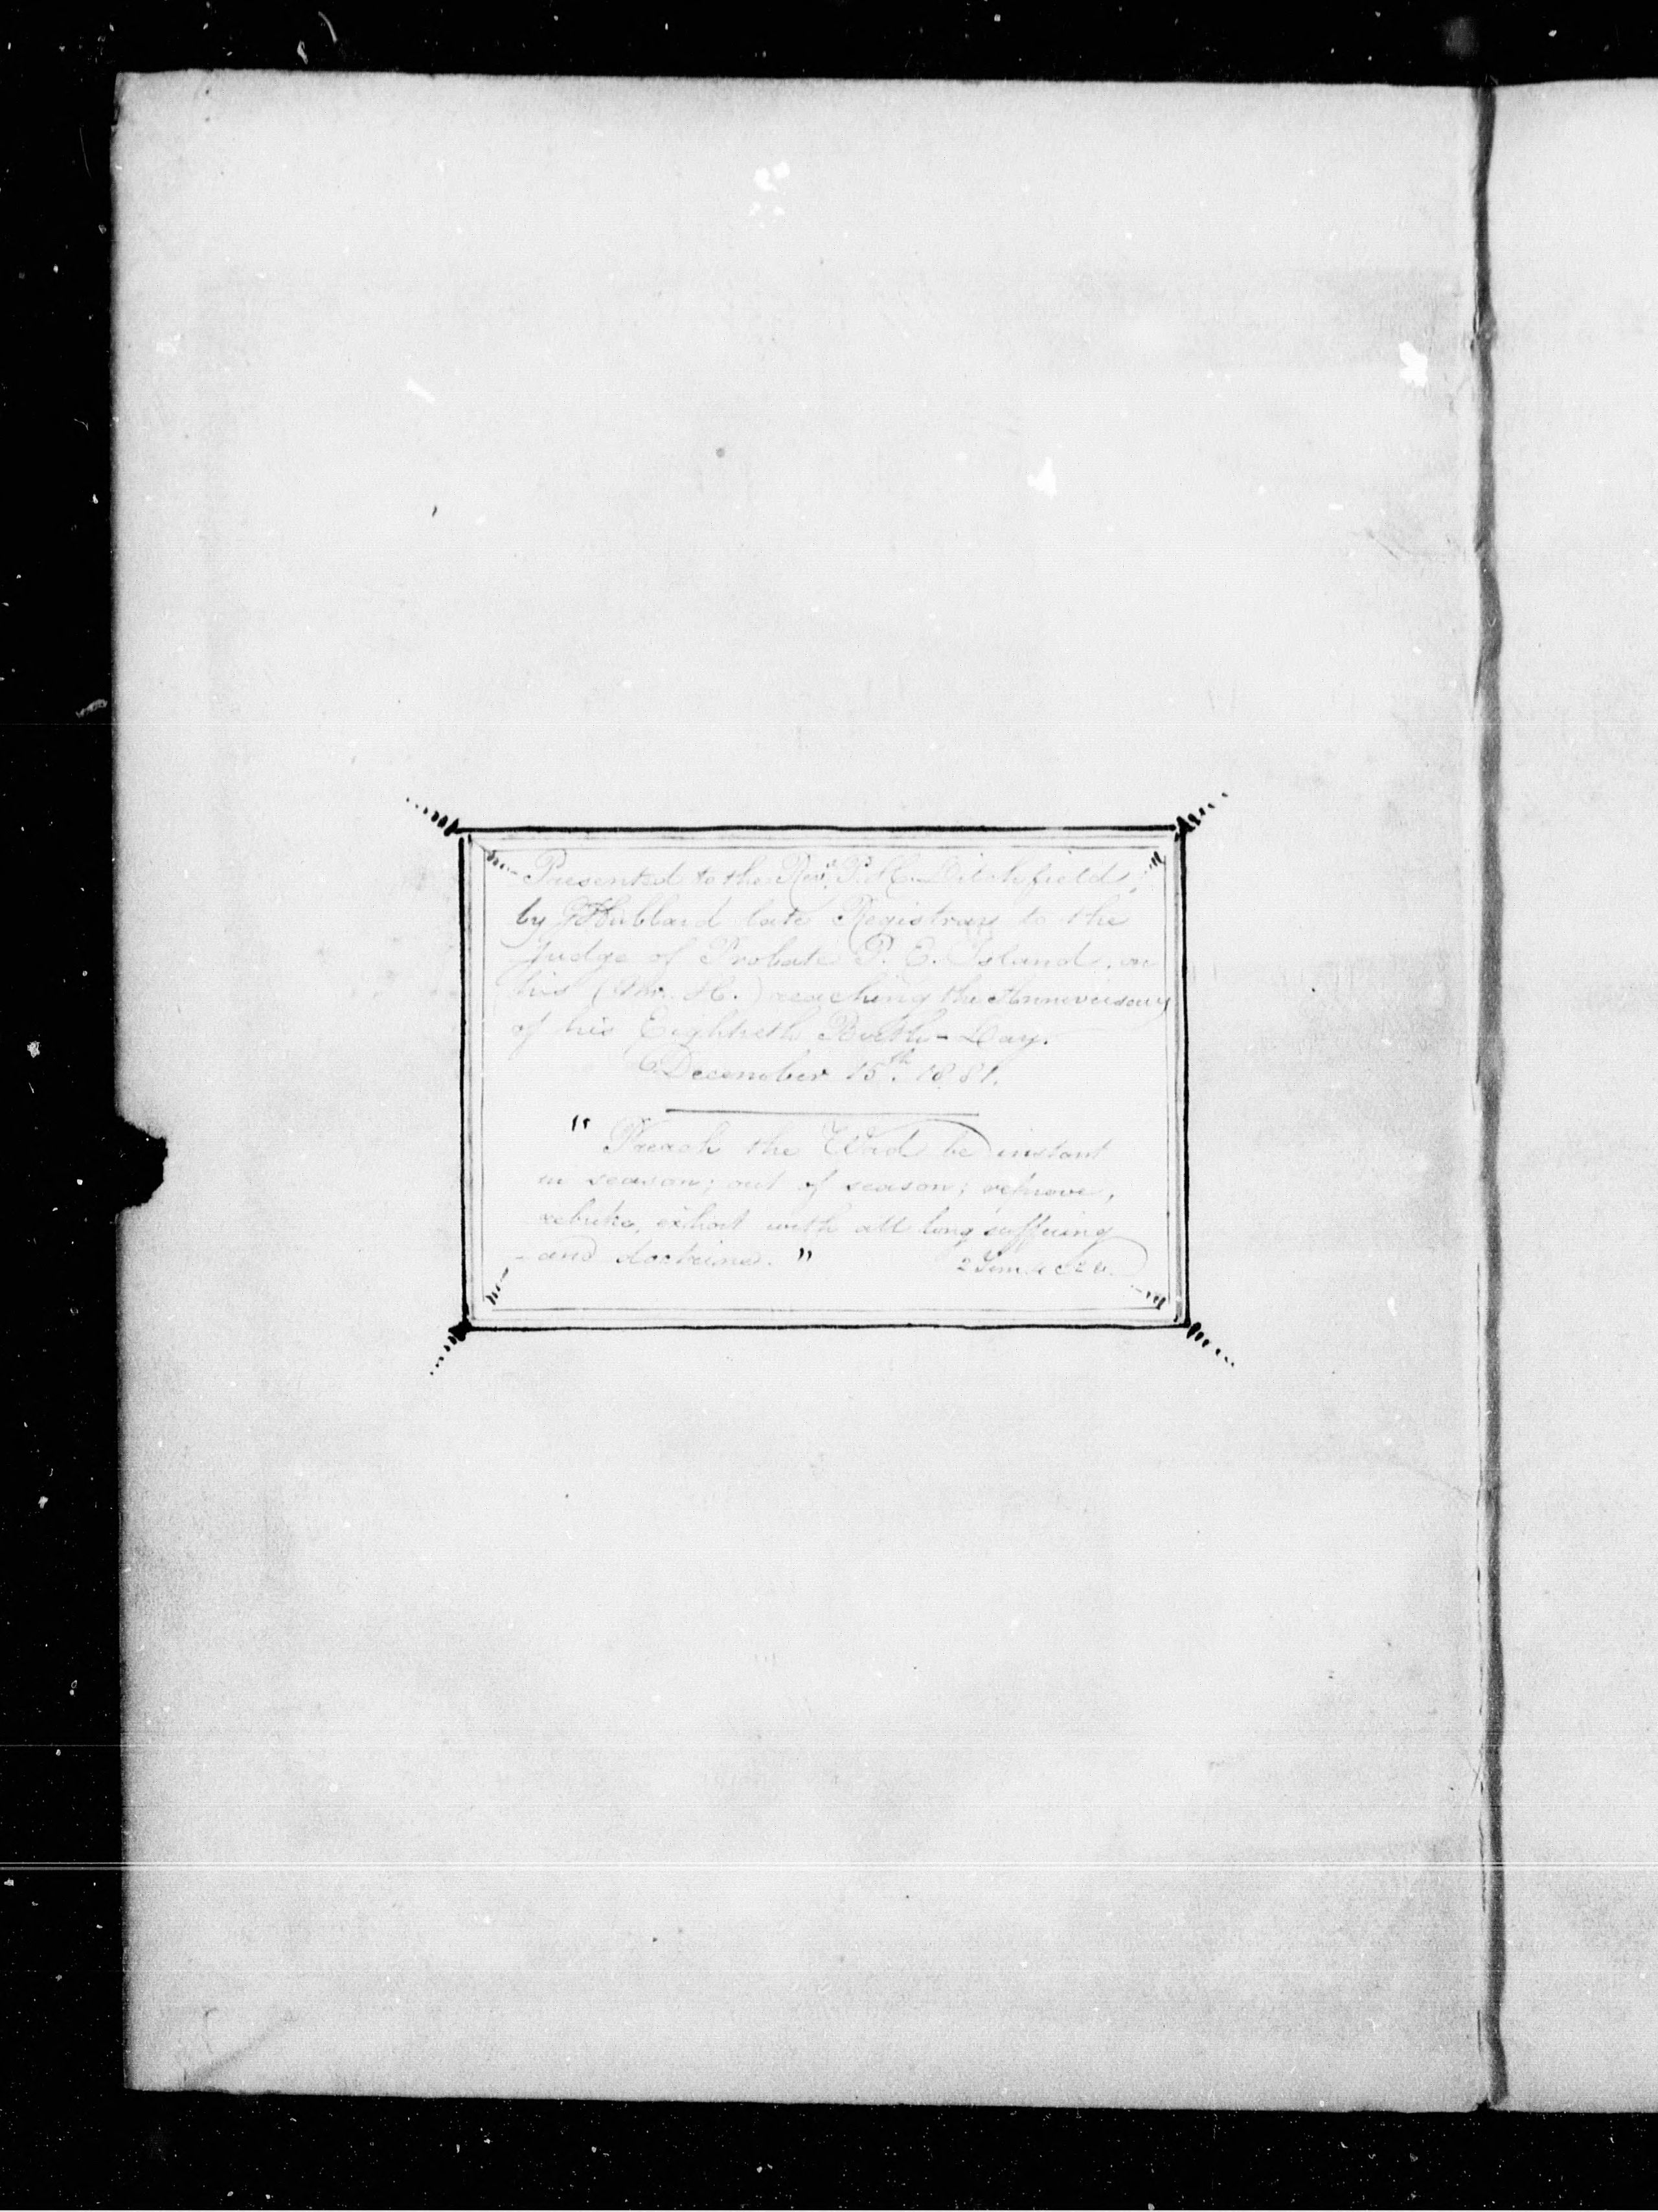 Presented to the Rev.d P. H. Ditchfield,
by Hubbard late Registrar to the
Judge of Probate P. E. Island, on
his (Mr. H.) reaching the Anniversary
of his Eightieth Birth-Day.
December 15th. 1881.
" Preach the Word be instant
in season; out of season; reprove,
rebuke, exhort with all long suffering
- and doctrine. " 2 Tim.